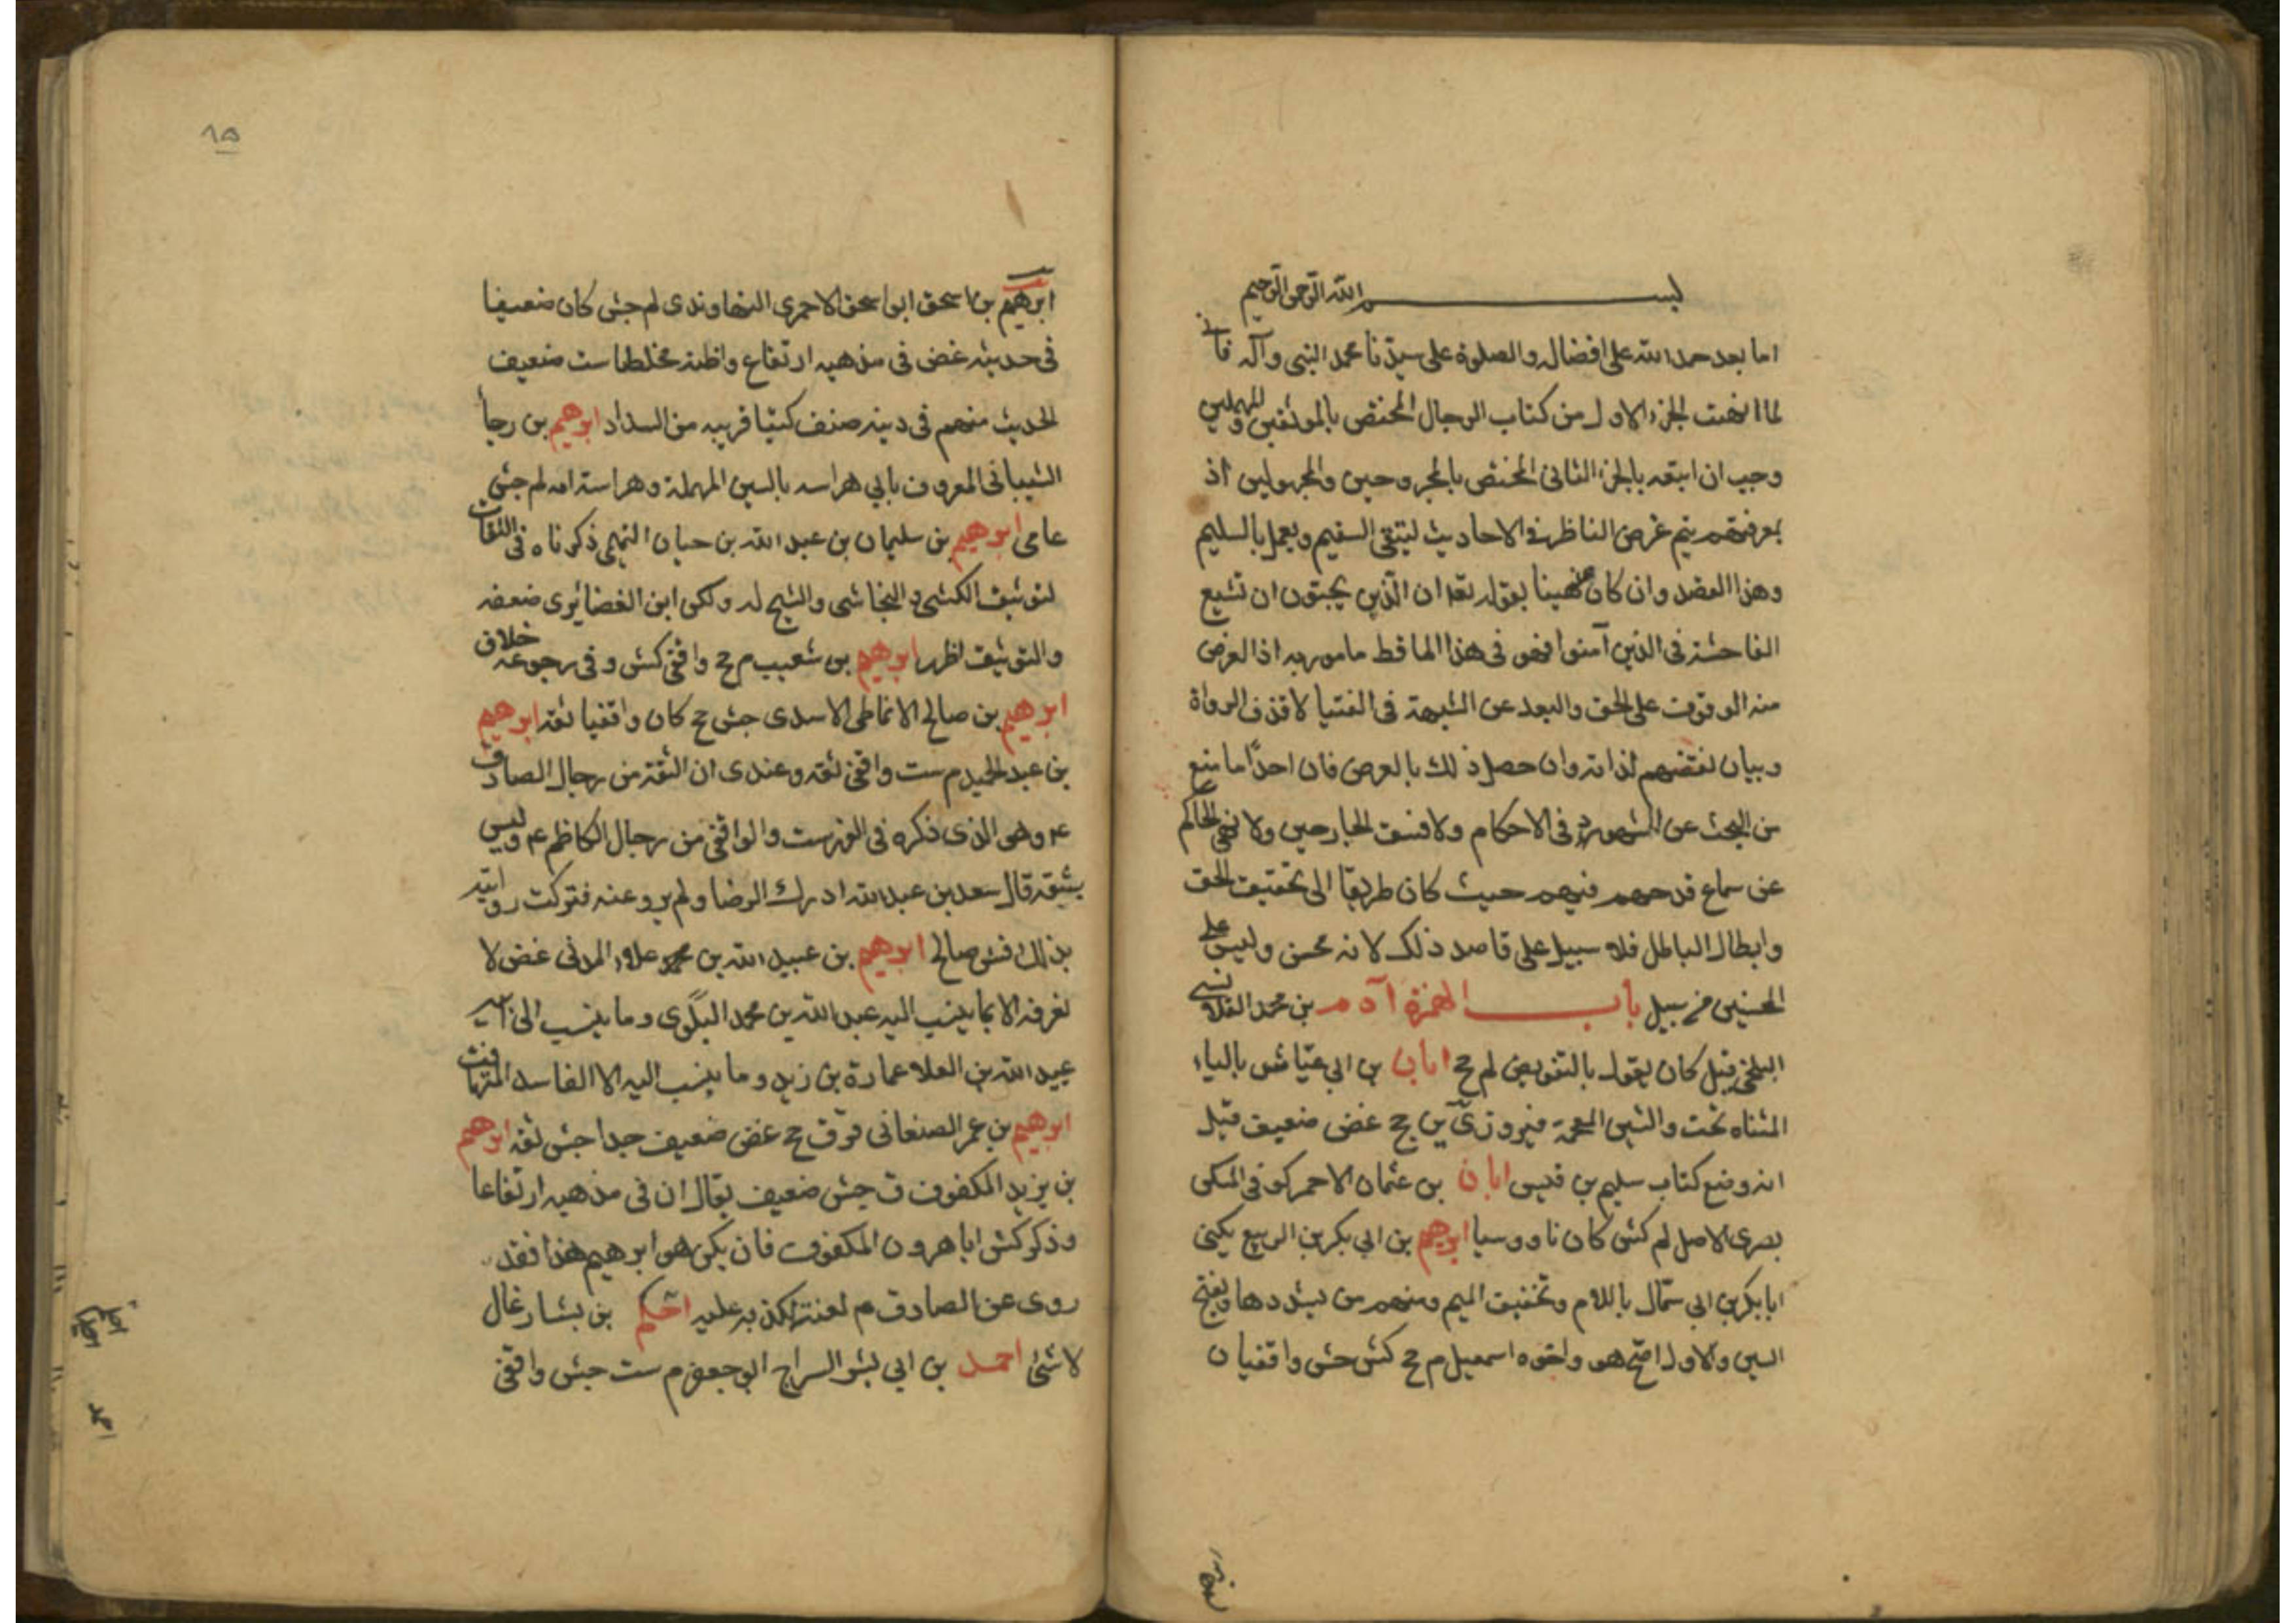 بسم الله الرحمن الرحيم
اما بعد حمد الله على افضاله والصلوة على سيدنا محمد النبى وآله فانى
لما انهيت الجزء الاول من كتاب الرجال المختص بالموثقين والمهملين
وجب ان اتبعه بالجزء الثانى المختص بالمجروحين والمجهولين اذ
بمعرفتهم يتم غرض الناظر فى الاحاديث ليتقى السقيم ويعمل بالسليم
وهذا القصد وان كان منهينا عنه بقوله تعا ان الذين يحبون ان تشيع
الفاحشة فى الذين آمنوا فهو فى هذا الماقط مامور به اذ الغرض
منه الوقوف على الحق والبعد عن الشبهة فى الفتيا لا قذف الرواة
وبيان نقضهم لذاته وان حصل ذلك بالعرض فان احدًا ما منع
من البحث عن الشهود فى الاحكام ولا فسق الجارحين ولا نهى الحاكم
عن سماع قدحهم فيهم حيث كان طريقًا الى تحقيق الحق
وابطال الباطل فلا سبيل على قاصد ذلك لانه محسن وليس على
المحسنين من سبيل باب الهمزة آدم بن محمد القلانسى
البلخى قيل كان يقول بالتفويض لم جح ابان بن ابى عيّاش بالياء
المثناه تحت والشين المعجمة فيروز ى ين جح غض ضعيف قيل
انه وضع كتاب سليم بن قيس ابان بن عثمان الاحمر كوفى المسكن
بصرى الاصل لم كش كان ناووسيا ابرهيم بن ابى بكر بن الربيع يكنى
ابا بكر بن ابى سمّال باللام وتخفيف الميم ومنهم من يشددها ويفتح
السين والاول اصح هو واخوه اسمعيل م جح كش جش واقفيان
ابرهيم بن
٨٥
ابرهيم بن اسحق ابو اسحق الاحمرى النهاوندى لم جش كان ضعيفا
فى حديثه غض فى مذهبه ارتفاع واظنه مخلطا ست ضعيف
الحديث متهم فى دينه صنف كتبا قريبه من السداد ابرهيم بن رجأ
الشيبانى المعروف بابي هراسه بالسين المهملة وهراسة امه لم جش
عامى ابرهيم بن سليمان بن عبد الله بن حيان النهمى ذكرناه فى الثقات
لتوثيق الكشى والنجاشى والشيخ له ولكن ابن الغضائرى ضعفه
والتوثيق اظهر ابرهيم بن شعيب م جح واقفى كش وفى رجوعه خلاف
ابرهيم بن صالح الانماطى الاسدى جش جح كان واقفيا ثقة ابرهيم
بن عبد الحميد م ست واقفى ثقه وعندى ان الثقة من رجال الصادق
ع وهو الذى ذكره فى الفهرست والواقفى من رجال الكاظم ع وليس
بثقة قال سعد بن عبد الله ادرك الرضا ولم يرو عنه فتركت روايته
بذلك فش صالح ابرهيم بن عبيد الله بن العلاء المدنى غض لا
نعرفه الا بما ينسب اليه عبد الله بن محمد البلوى وما ينسب الى ابيه
عبيد الله بن العلا عمارة بن زيد وما ينسب اليه الا الفاسد المتهافت
ابرهيم بن عمر الصنعانى قر ق جح غض ضعيف جدا جش ثقه ابرهيم
بن يزيد المكفوف ق جش ضعيف يقال ان فى مذهبه ارتفاعا
وذكر كش ابا هرون المكفوف فان يكن هو ابرهيم هذا فقد
روى عن الصادق م لعنته لكذبه عليه احكم بن بشار غال
لا شئ احمد بن ابى بشر السراج ابو جعفر م ست جش واقفى
احمد